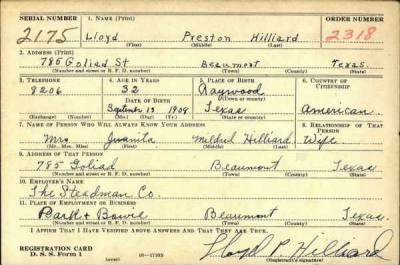 SERIAL NUMBER 1. NAME (Print) ORDER NUMBER
2175 Lloyd Preston Hilliard 2318
(First) (Middle) (Last)
2. ADDRESS (Print)
785 Goliad St Beaumont Texas.
(Number and street or R. F. D. number) (Town) (County) (State)
3. TELEPHONE 4. AGE IN YEARS 5. PLACE OF BIRTH 6. COUNTRY OF CITIZENSHIP
8206 32 Raywood
DATE OF BIRTH (Town or county)
September 13 1908 Texas American.
(Exchange) (Number) (Mo.) (Day) (Yr.) (State or country)
7. NAME OF PERSON WHO WILL ALWAYS KNOW YOUR ADDRESS 8. RELATIONSHIP OF THAT PERSON
Mrs Juanita Mildred Hilliard Wife
(Mr., Mrs., Miss) (First) (Middle) (Last)
9. ADDRESS OF THAT PERSON
785 Goliad Beaumont Texas
(Number and street or R. F. D. number) (Town) (County) (State)
10. EMPLOYER'S NAME
The Steadman Co
11. PLACE OF EMPLOYMENT OR BUSINESS
Park & Bowie Beaumont Texas.
(Number and street or R. F. D. number) (Town) (County) (State)
I AFFIRM THAT I HAVE VERIFIED ABOVE ANSWERS AND THAT THEY ARE TRUE.
REGISTRATION CARD
D. S. S. Form 1 (over) Lloyd P. Hilliard
(Registrant's signature)